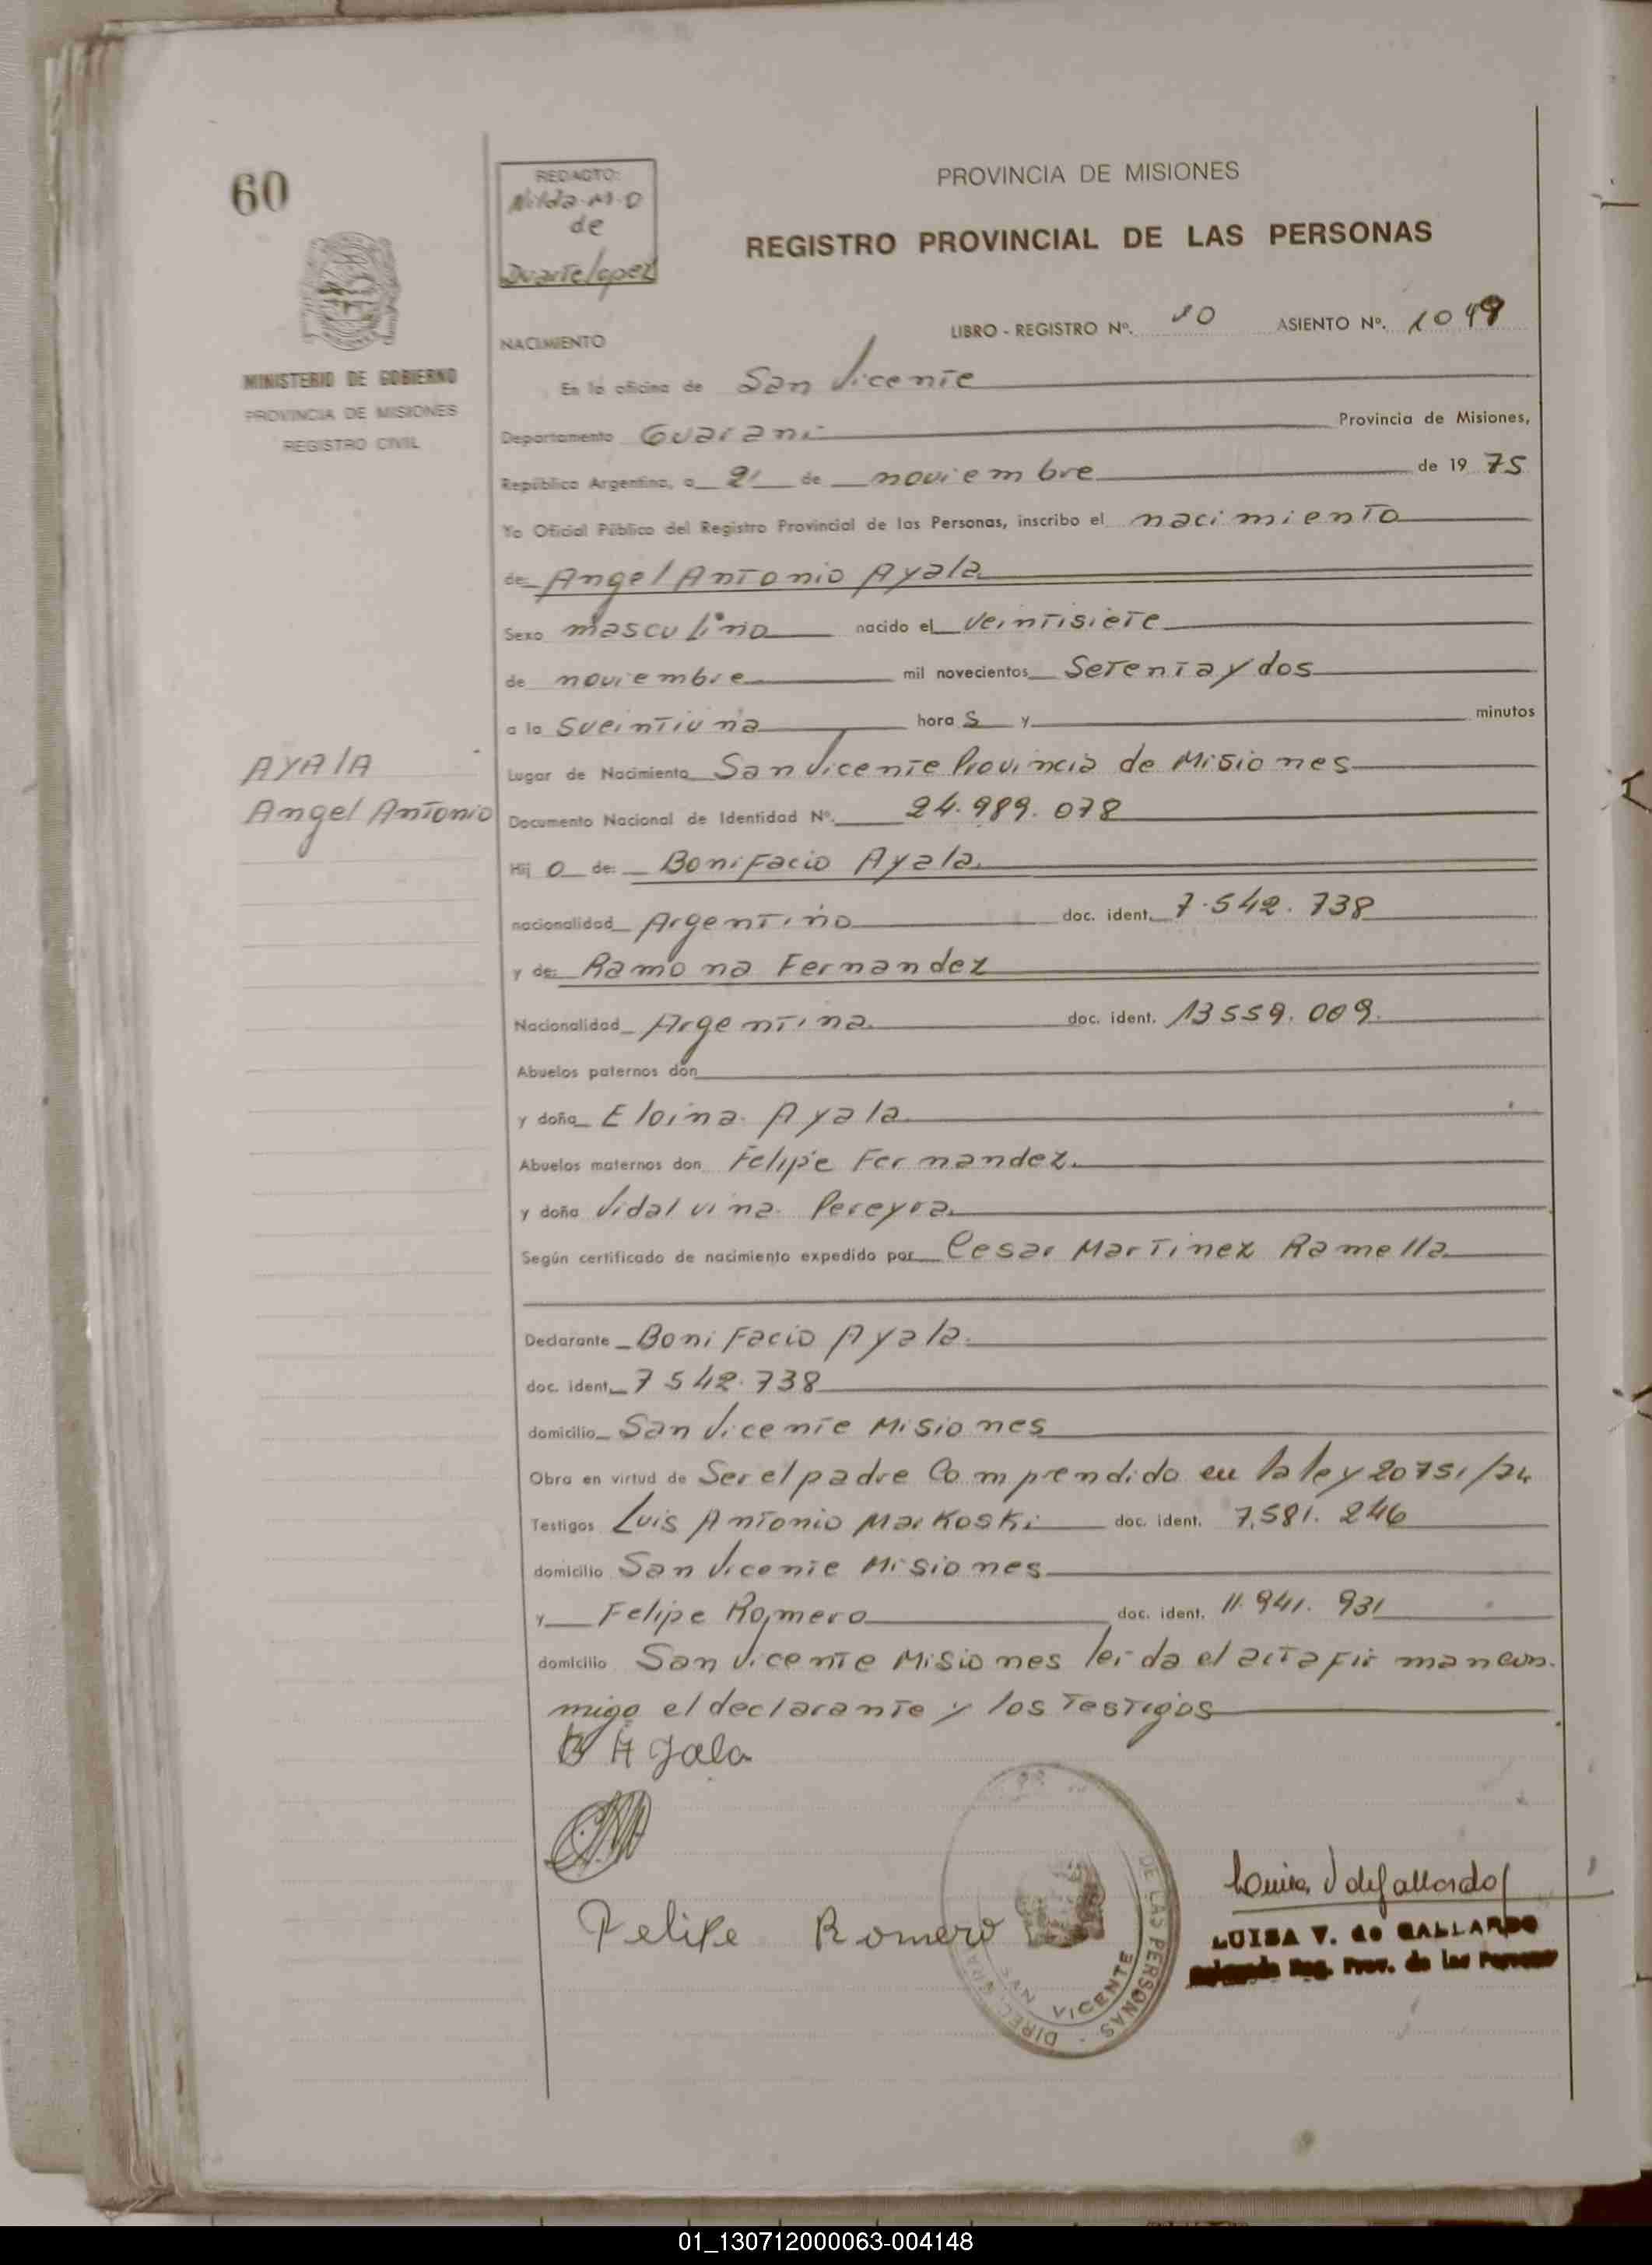 60
REDACTO:
Nilda M. D
de
Duarte lopez
PROVINCIA DE MISIONES
REGISTRO PROVINCIAL DE LAS PERSONAS
MINISTERIO DE GOBIERNO
PROVINCIA DE MISIONES
REGISTRO CIVIL
NACIMIENTO
LIBRO - REGISTRO Nº. 10 ASIENTO Nº. 1049
En la oficina de San Vicente
Departamento Guarani Provincia de Misiones,
República Argentina, a 21 de noviembre de 19 75
Yo Oficial Público del Registro Provincial de las Personas, inscribo el nacimiento
de: Angel Antonio Ayala
Sexo masculino nacido el veintisiete
de noviembre mil novecientos Setenta y dos
a la s veintiuna hora s y minutos
AYAlA
Angel Antonio
Lugar de Nacimiento San Vicente Provincia de Misiones
Documento Nacional de Identidad Nº. 24.989.078
Hij o de: Bonifacio Ayala.
nacionalidad Argentino doc. ident. 7.542.738
y de: Ramona Fernandez
Nacionalidad Argentina doc. ident. 13559.009.
Abuelos paternos don
y doña Eloina Ayala
Abuelos maternos don Felipe Fernandez.
y doña Vidalvina Pereyra.
Según certificado de nacimiento expedido por Cesar Martinez Ramella
Declarante Bonifacio Ayala.
doc. ident. 7542.738
domicilio San Vicente Misiones
Obra en virtud de Ser el padre Comprendido en la ley 20751/74
Testigos Luis Antonio Markoski doc. ident. 7,581.246
domicilio San Vicente Misiones
y Felipe Romero doc. ident. 11.941.931
domicilio San Vicente Misiones leida el acta firman con-
migo el declarante y los testigos
B Ayala
Felipe Romero
DIREC PERSONAS DE LAS PERSONAS
SAN VICENTE
Luisa V de Gallardo
LUISA V. de GALLARDO
Reg. Prov. de las Personas
01_130712000063-004148